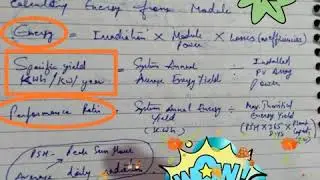 Calculating Energy from Module
Energy = Irradiation × Module Power × Losses (inefficiencies)
Specific yield = System Annual ÷ Installed
kWh/kW/year Average Energy Yield PV Array Power
Performance Ratio = System Annual Energy ÷ Max Theoretical
Yield Energy Yield
(kWh) (PSH × 365 × Plant
Days
PSH - Peak Sun Hour
Average daily
WOW!